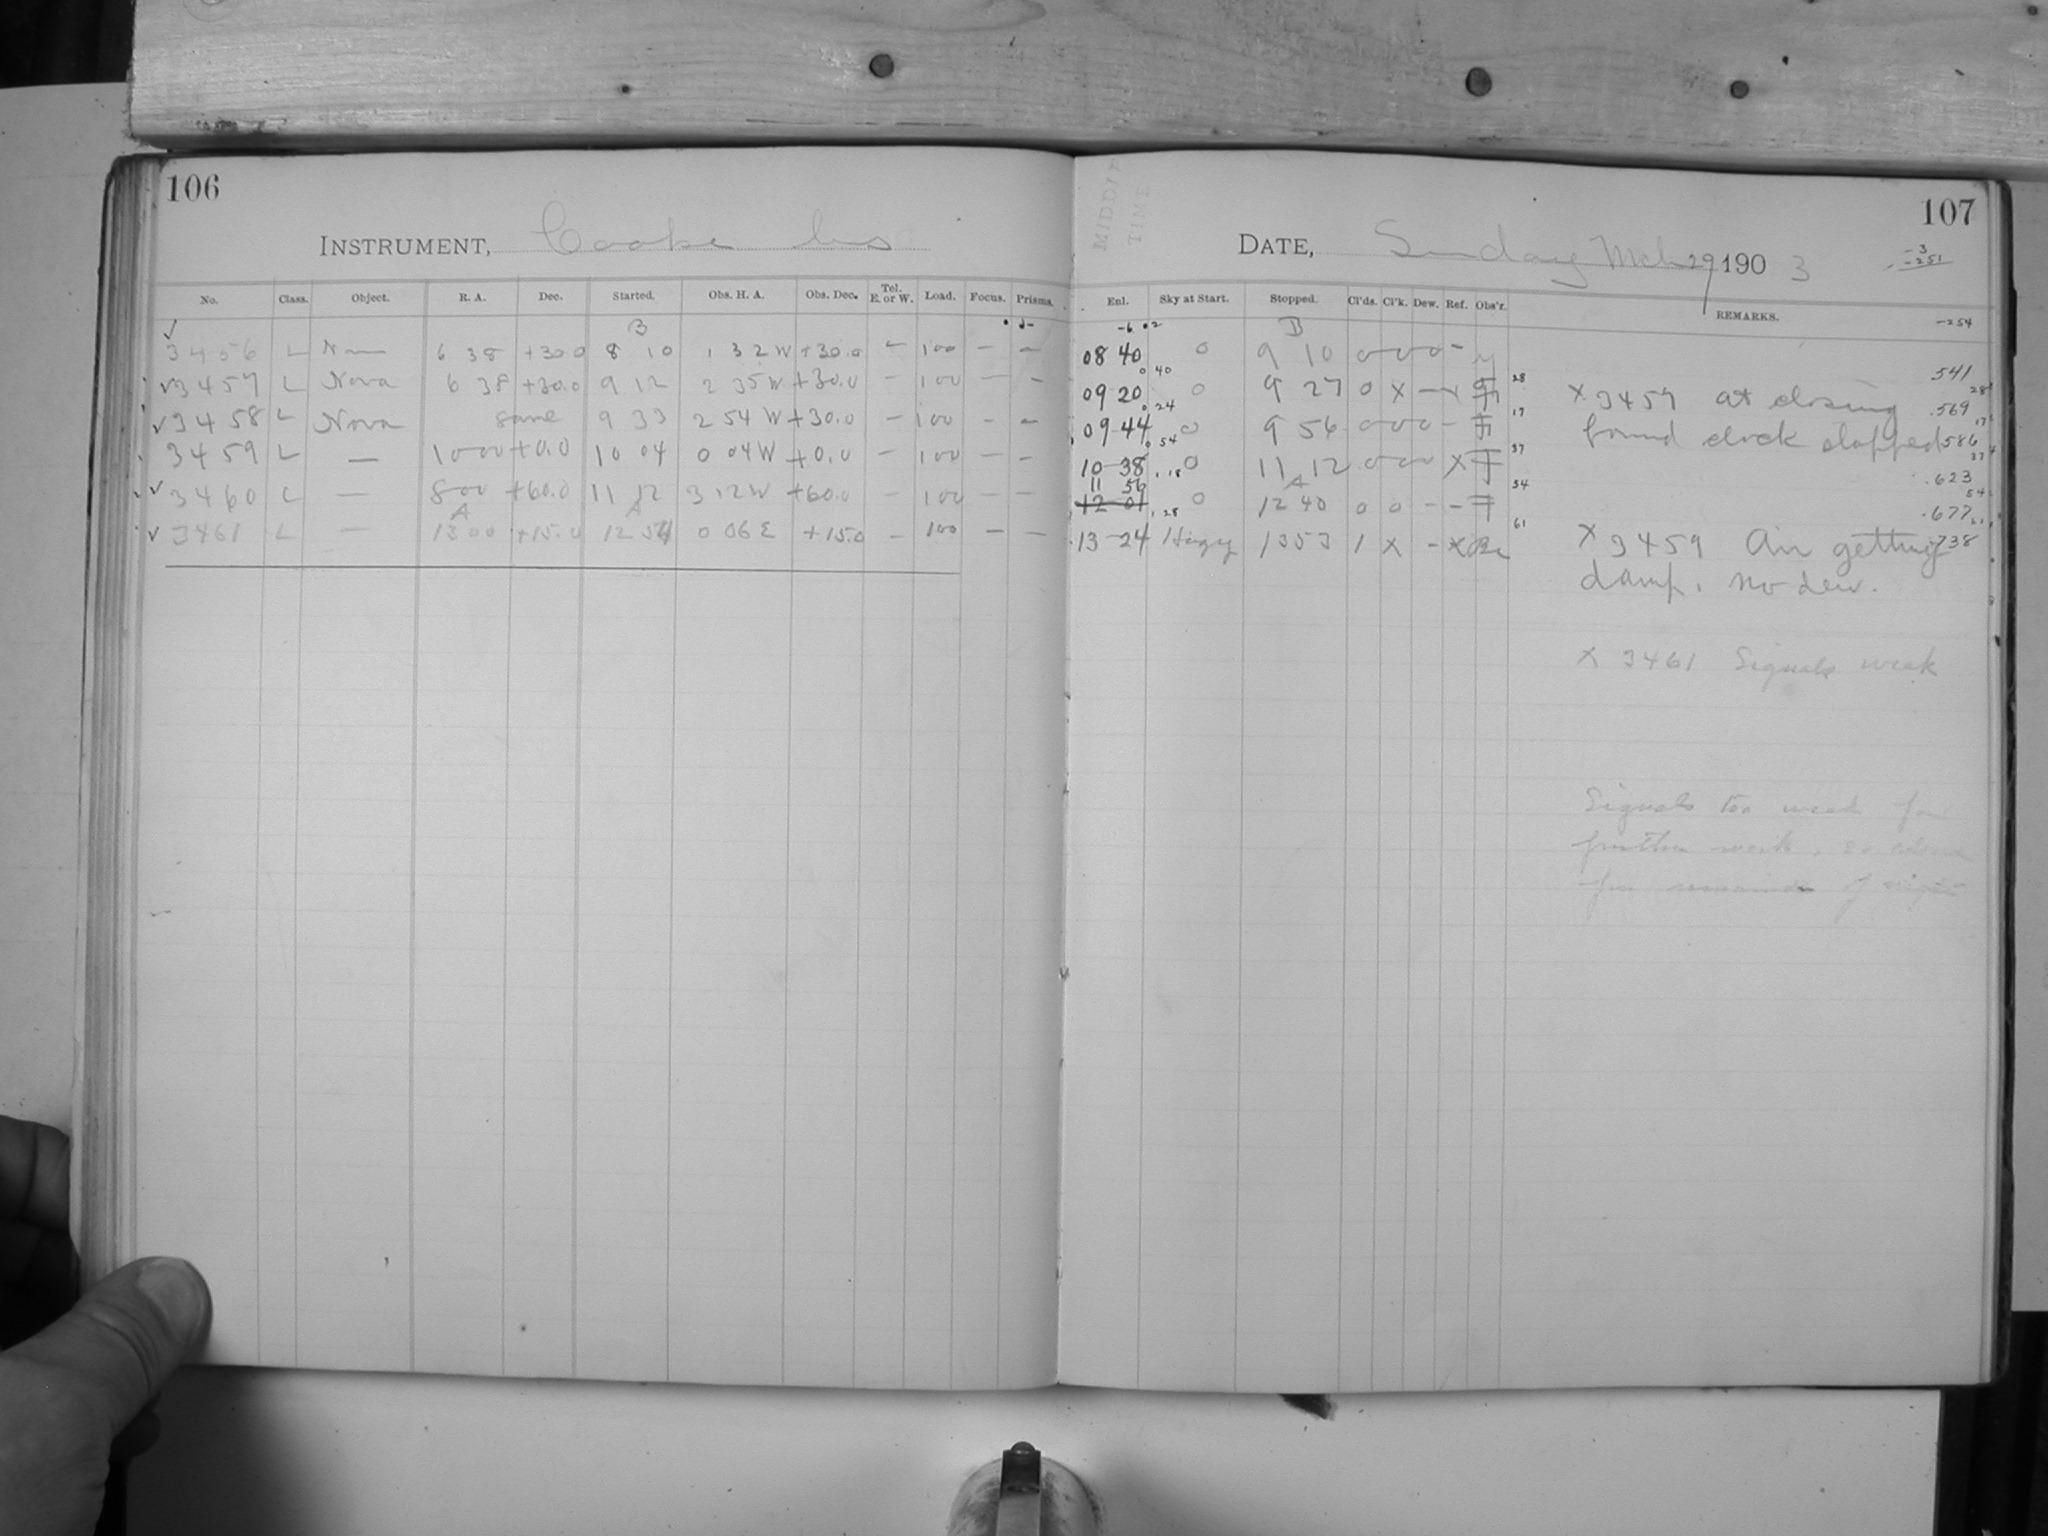 106
107
INSTRUMENT, Cooke lens
MIDDLE
TIME
DATE, Sunday Mch 29 1903
-3
-251
No. Class. Object. R. A. Dec. Started. Obs. H. A. Obs. Dec. Tel. E. or W. Load. Focus. Prisms. Enl. Sky at Start. Stopped. Cl'ds. Cl'k. Dew. Ref. Obs'r. REMARKS.
B -6 .2 B -254
✓ 3456 L Nova 6 38 +30.0 8 10 1 32 W +30.0 – 100 – – 08 40 0 9 10 0 0 0 – 541
✓ 3457 L Nova 6 38 +30.0 9 12 2 35 W +30.0 – 100 – – 09 20 .40 0 9 27 0 X – X 28 X 3457 at closing .569 28
✓ 3458 L Nova same 9 33 2 54 W +30.0 – 100 – – 09 44 .24 0 9 56 0 0 0 – 17 found clock stopped 586 17
3459 L — 10 00 +0.0 10 04 0 04 W +0.0 – 100 – – 10 38 .54 0 11 12 0 0 0 X 37 .623 37
✓ 3460 L — 8 00 +60.0 11 12 3 12 W +60.0 – 100 – – 12 01 11 56 .18 0 12 40 0 0 – – 54 .677 54
A A A
✓ 3461 L — 13 00 +15.0 12 54 0 06 E +15.0 – 100 – – 13 24 .28 Hazy 13 53 1 X – X 61 X 3459 Air getting 738 61
damp. No dew.
X 3461 Signals weak
Signals too weak for
further work, so close
for remainder of night